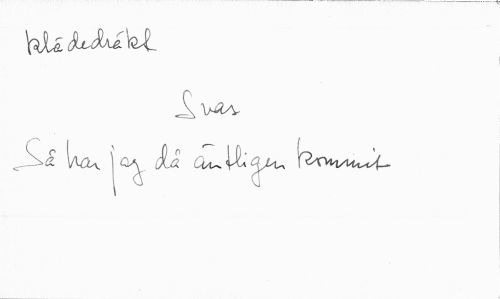 klädedräkt
Svar
Så har jag då äntligen kommit